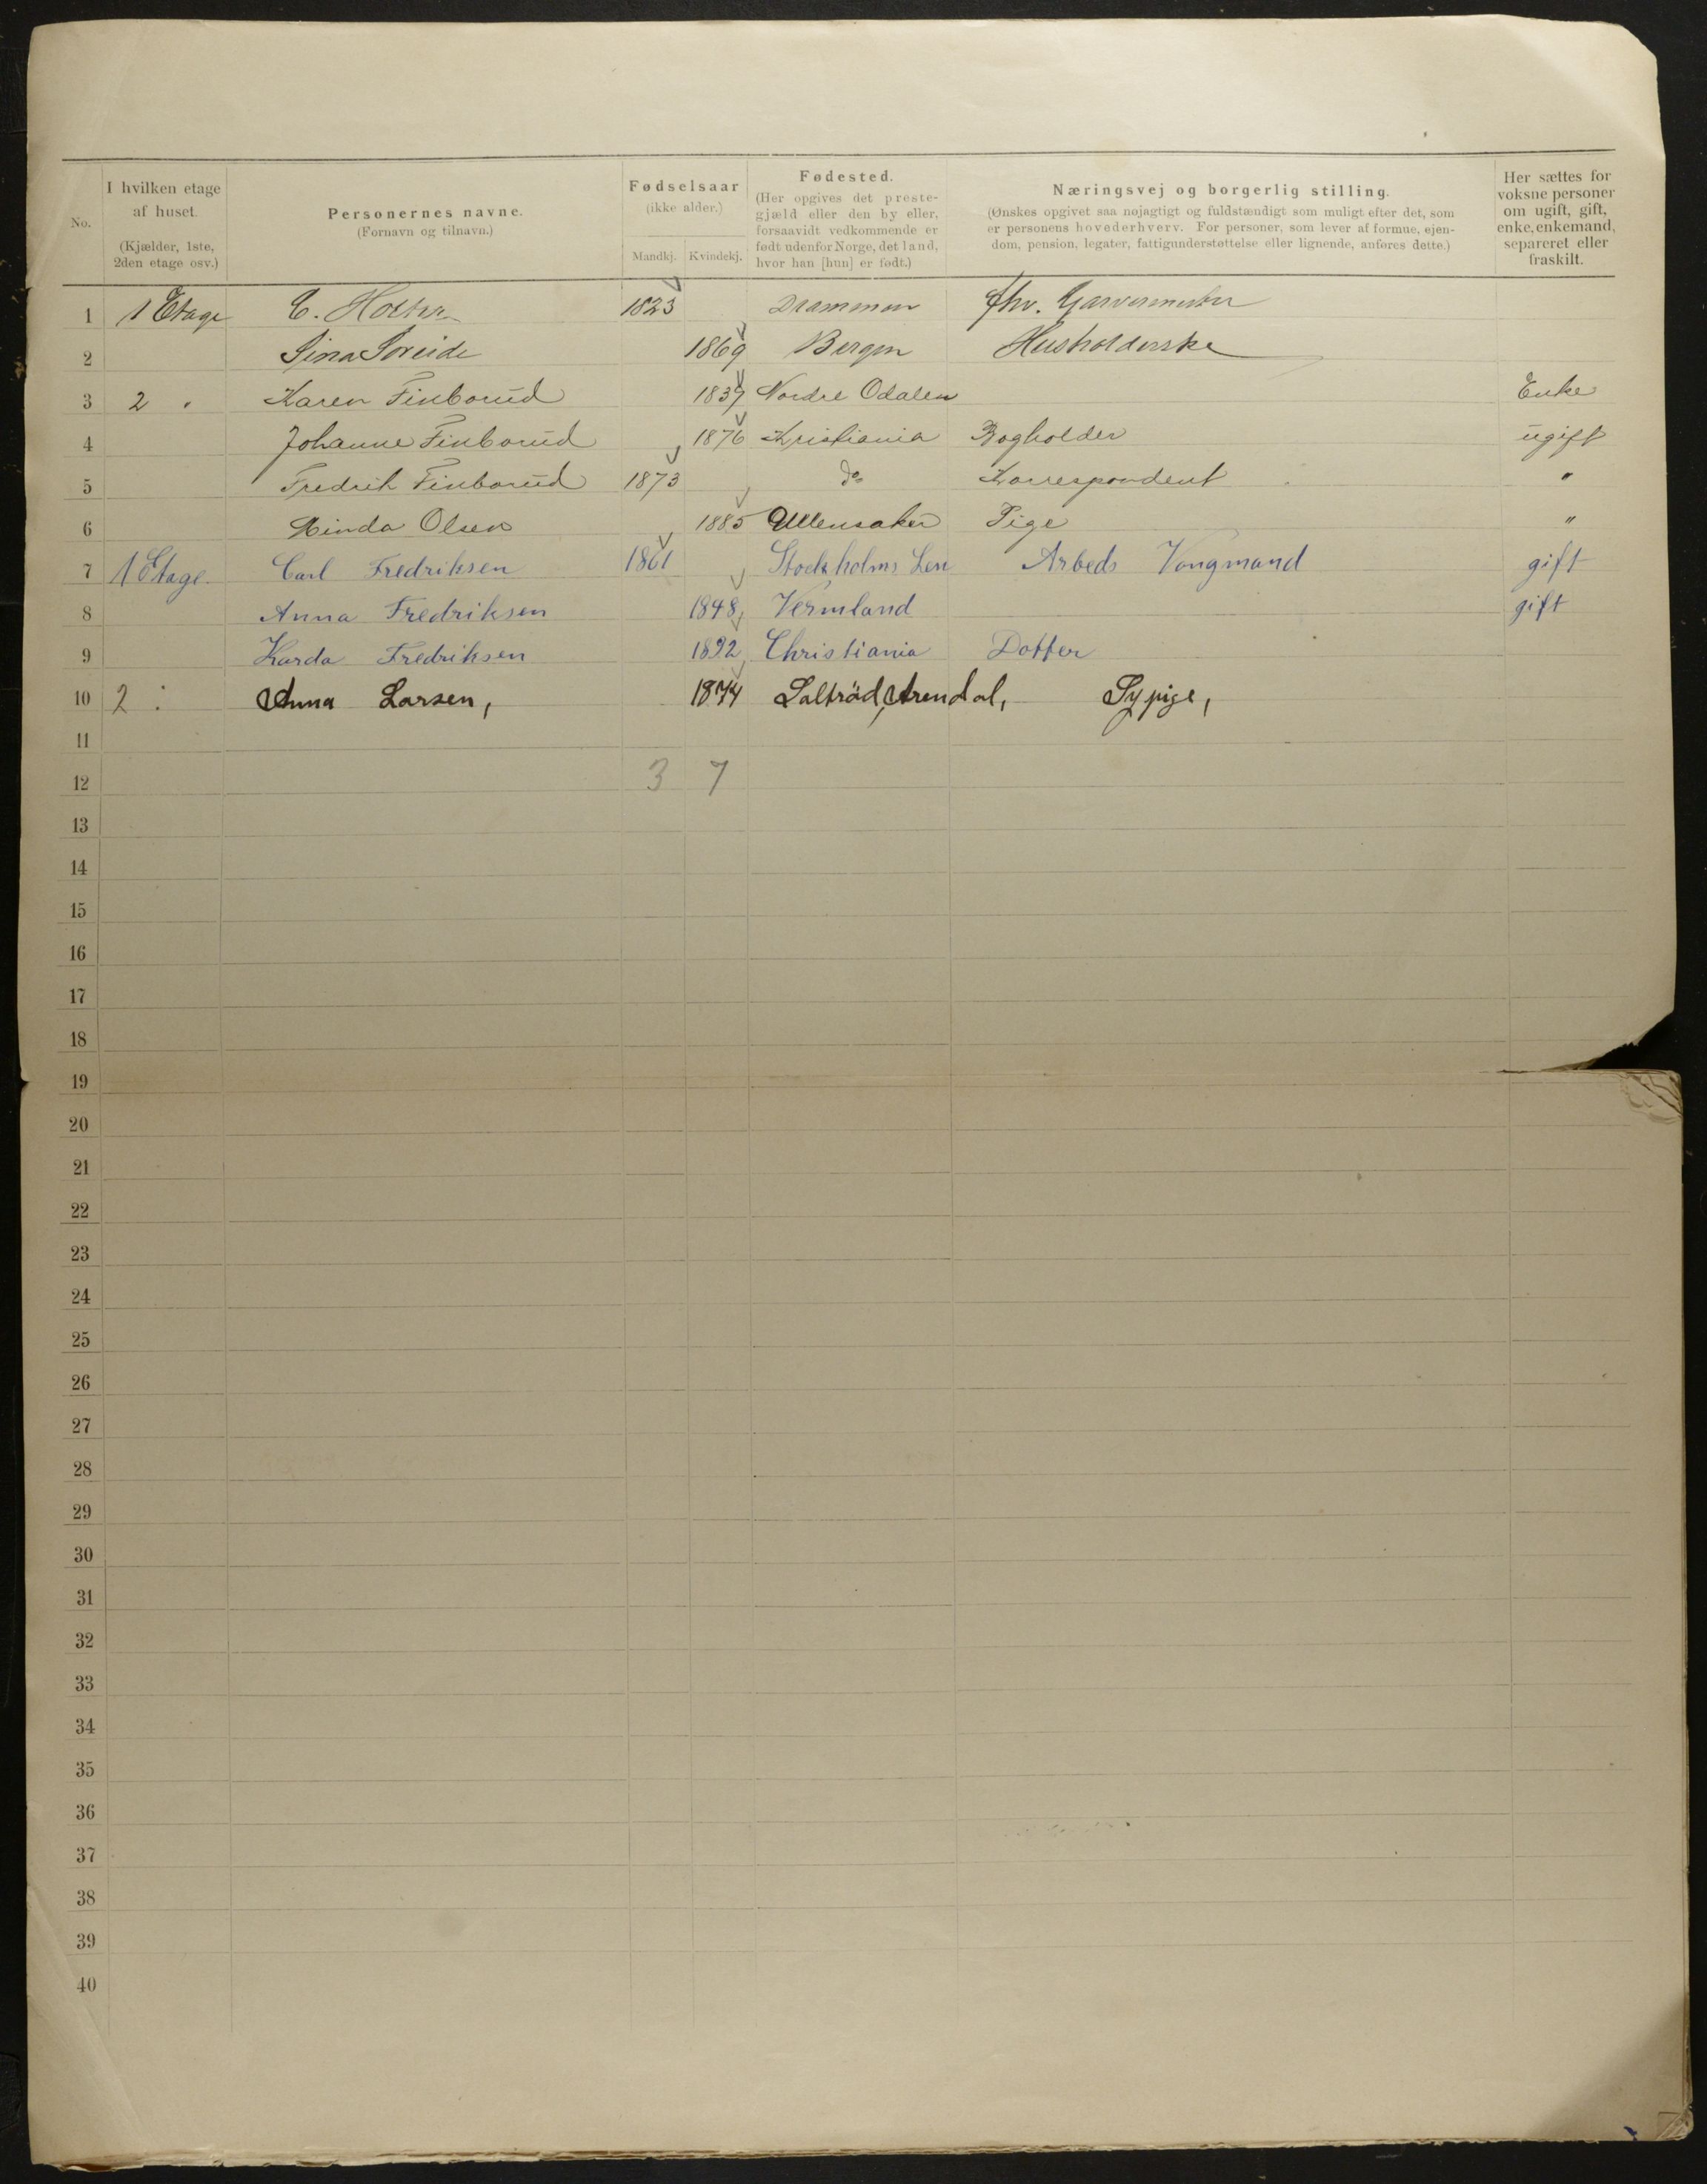 No. | I hvilken etage af huset. (Kjælder, 1ste, 2den etage osv.) | Personernes navne. (Fornavn og tilnavn.) | Fødselsaar (ikke alder.) Mandkj. | Kvindekj. | Fødested. (Her opgives det prestegjæld eller den by eller, forsaavidt vedkommende er født udenfor Norge, det land, hvor han [hun] er født.) | Næringsvej og borgerlig stilling. (Ønskes opgivet saa nøjagtigt og fuldstændigt som muligt efter det, som er personens hovederhverv. For personer, som lever af formue, ejendom, pension, legater, fattigunderstøttelse eller lignende, anføres dette.) | Her sættes for voksne personer om ugift, gift, enke, enkemand, separeret eller fraskilt.
1 1 Etage C. 1823 Drammen fhv. Garvermester
2 Sina Soreide 1869 Bergen Husholderske
3 2 " Karen Finborud 1837 Nordre Odalen Enke
4 Johanne Finborud 1876 Kristiania Bogholder ugift
5 Fredrik Finborud 1873 do Korrespondent "
6 Olsen 1885 Ullensaker Pige "
7 1 Etage. Carl Fredriksen 1861 Stockholms Len Arbeds Vongmand gift
8 Anna Fredriksen 1848 Vermland gift
9 Karda Fredriksen 1892 Christiania Dotter
10 2 : Anna Larsen, 1874 Saltröd, Arendal, Sypige,
11
12 3 7
13
14
15
16
17
18
19
20
21
22
23
24
25
26
27
28
29
30
31
32
33
34
35
36
37
38
39
40